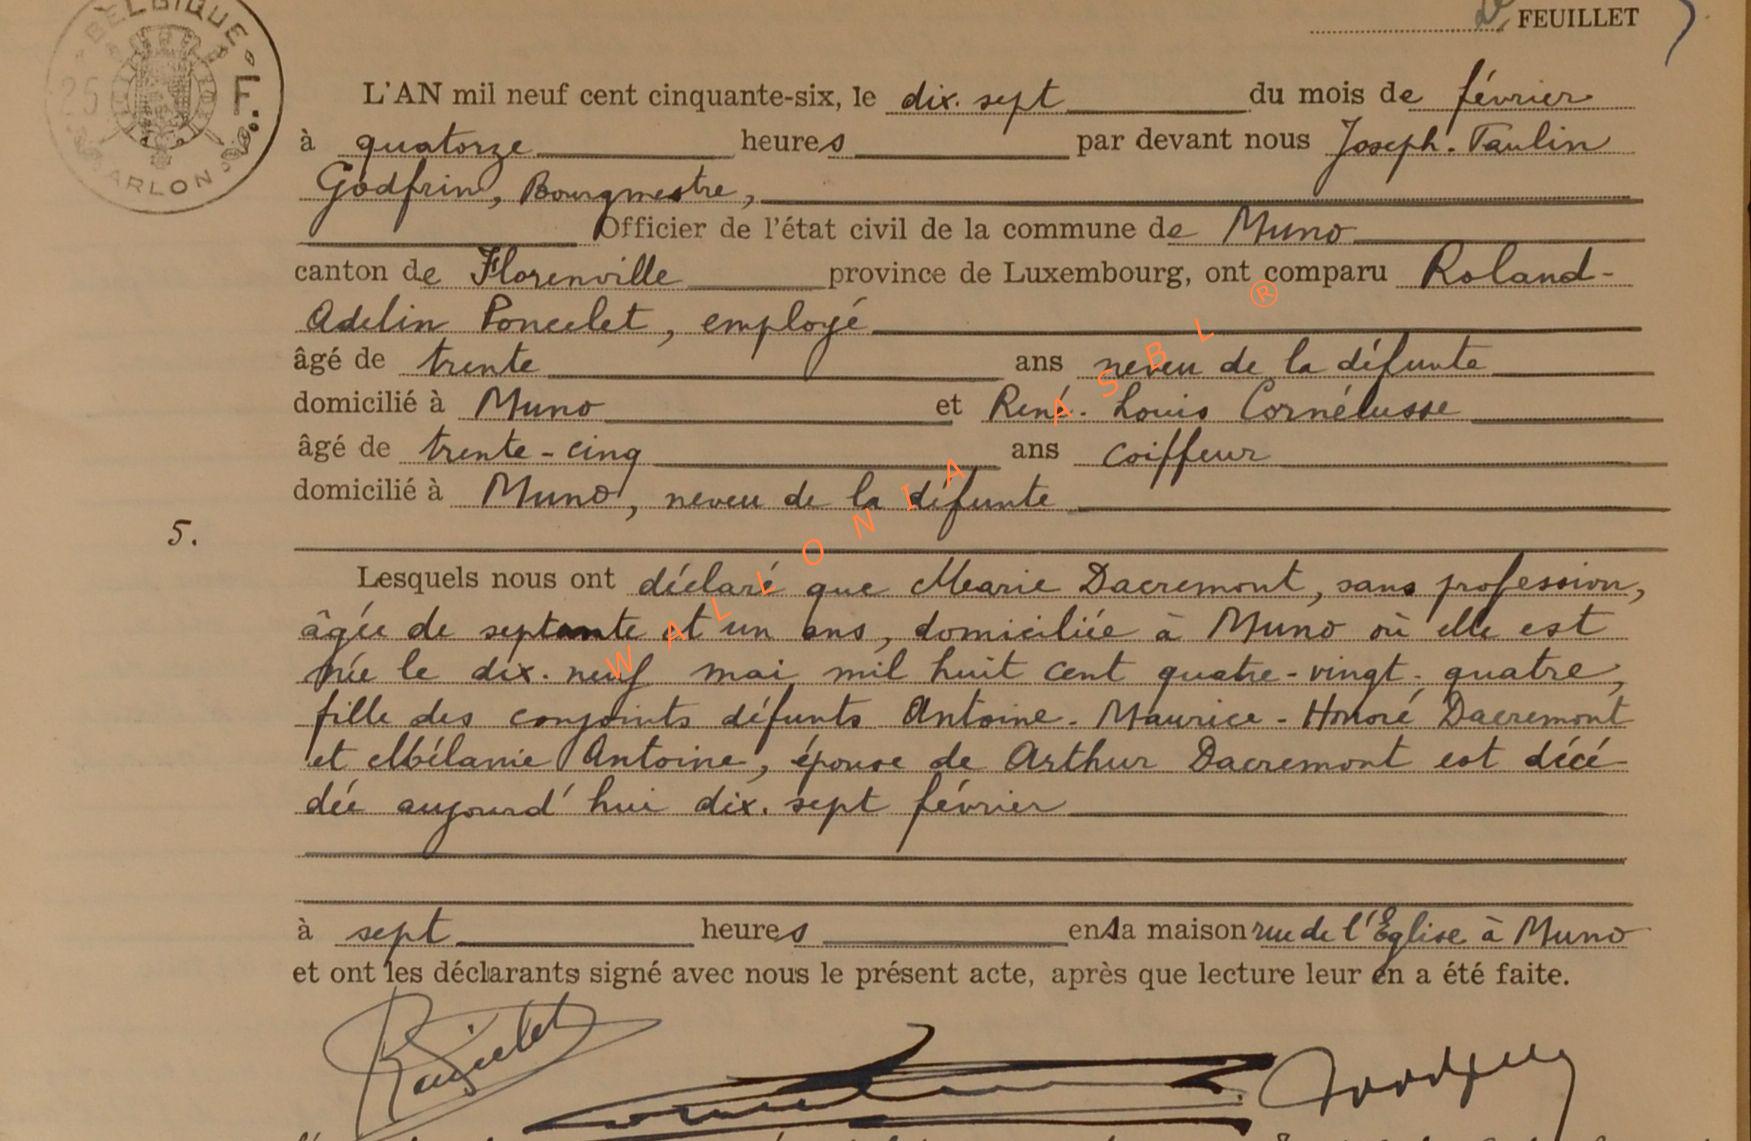 BELGIQUE
25 F.
ARLON
2e FEUILLET
L'AN mil neuf cent cinquante-six, le dix. sept du mois de février
à quatorze heures par devant nous Joseph. Paulin
Godfrin, Bourgmestre,
Officier de l'état civil de la commune de Muno
canton de Florenville province de Luxembourg, ont comparu Roland-
Adelin Poncelet, employé
âgé de trente ans neveu de la défunte
domicilié à Muno et René-Louis Cornélusse
âgé de trente-cinq ans coiffeur
domicilié à Muno, neveu de la défunte
5.
Lesquels nous ont déclaré que Marie Dacremont, sans profession,
âgée de septante et un ans, domiciliée à Muno où elle est
née le dix. neuf mai mil huit cent quatre-vingt-quatre,
fille des conjoints défunts Antoine-Maurice-Honoré Dacremont
et Mélanie Antoine, épouse de Arthur Dacremont est décé
dée aujourd'hui dix. sept février
à sept heures en la maison rue de l'Eglise à Muno
et ont les déclarants signé avec nous le présent acte, après que lecture leur en a été faite.
WALLONIA ASBL ®